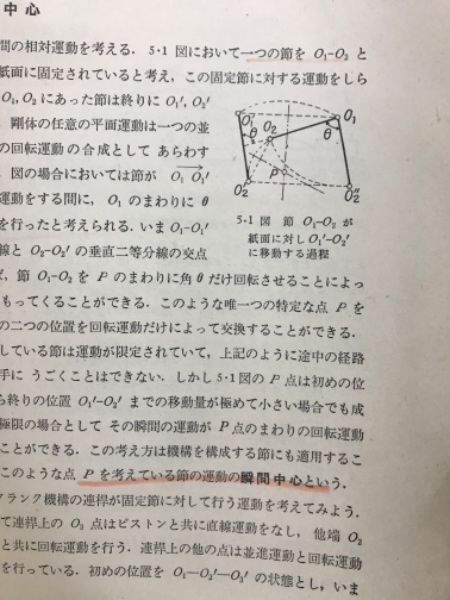 中心
間の相対運動を考える．5·1 図において一つの節を O₁-O₂ と
紙面に固定されていると考え，この固定節に対する運動をしら
O₁, O₂ にあった節は終りに O₁′, O₂′
剛体の任意の平面運動は一つの並
の回転運動の合成として あらわす
図の場合においては節が O₁O₁′
運動をする間に，O₁ のまわりに θ
を行ったと考えられる．いま O₁-O₁′
線と O₂-O₂′ の垂直二等分線の交点
ば，節 O₁-O₂ を P のまわりに角 θ だけ回転させることによっ
もってくることができる．このような唯一つの特定な点 P を
の二つの位置を回転運動だけによって交換することができる．
している節は運動が限定されていて，上記のように途中の経路
手に うごくことはできない．しかし 5·1 図の P 点は初めの位
ら終りの位置 O₁′-O₂′ までの移動量が極めて小さい場合でも成
極限の場合として その瞬間の運動が P 点のまわりの回転運動
ことができる．この考え方は機構を構成する節にも適用するこ
このような点 P を考えている節の運動の瞬間中心という．
クランク機構の連桿が固定節に対して行う運動を考えてみよう．
て連桿上の O₃ 点はピストンと共に直線運動をなし，他端 O₂
と共に回転運動を行う．連桿上の他の点は並進運動と回転運動
を行っている．初めの位置を O₁—O₂′—O₃′ の状態とし，いま
O₁′
O₂
O₁
θ
θ
P
O₂′
O₂″
5·1 図 節 O₁-O₂ が
紙面に対し O₁′-O₂′
に移動する過程